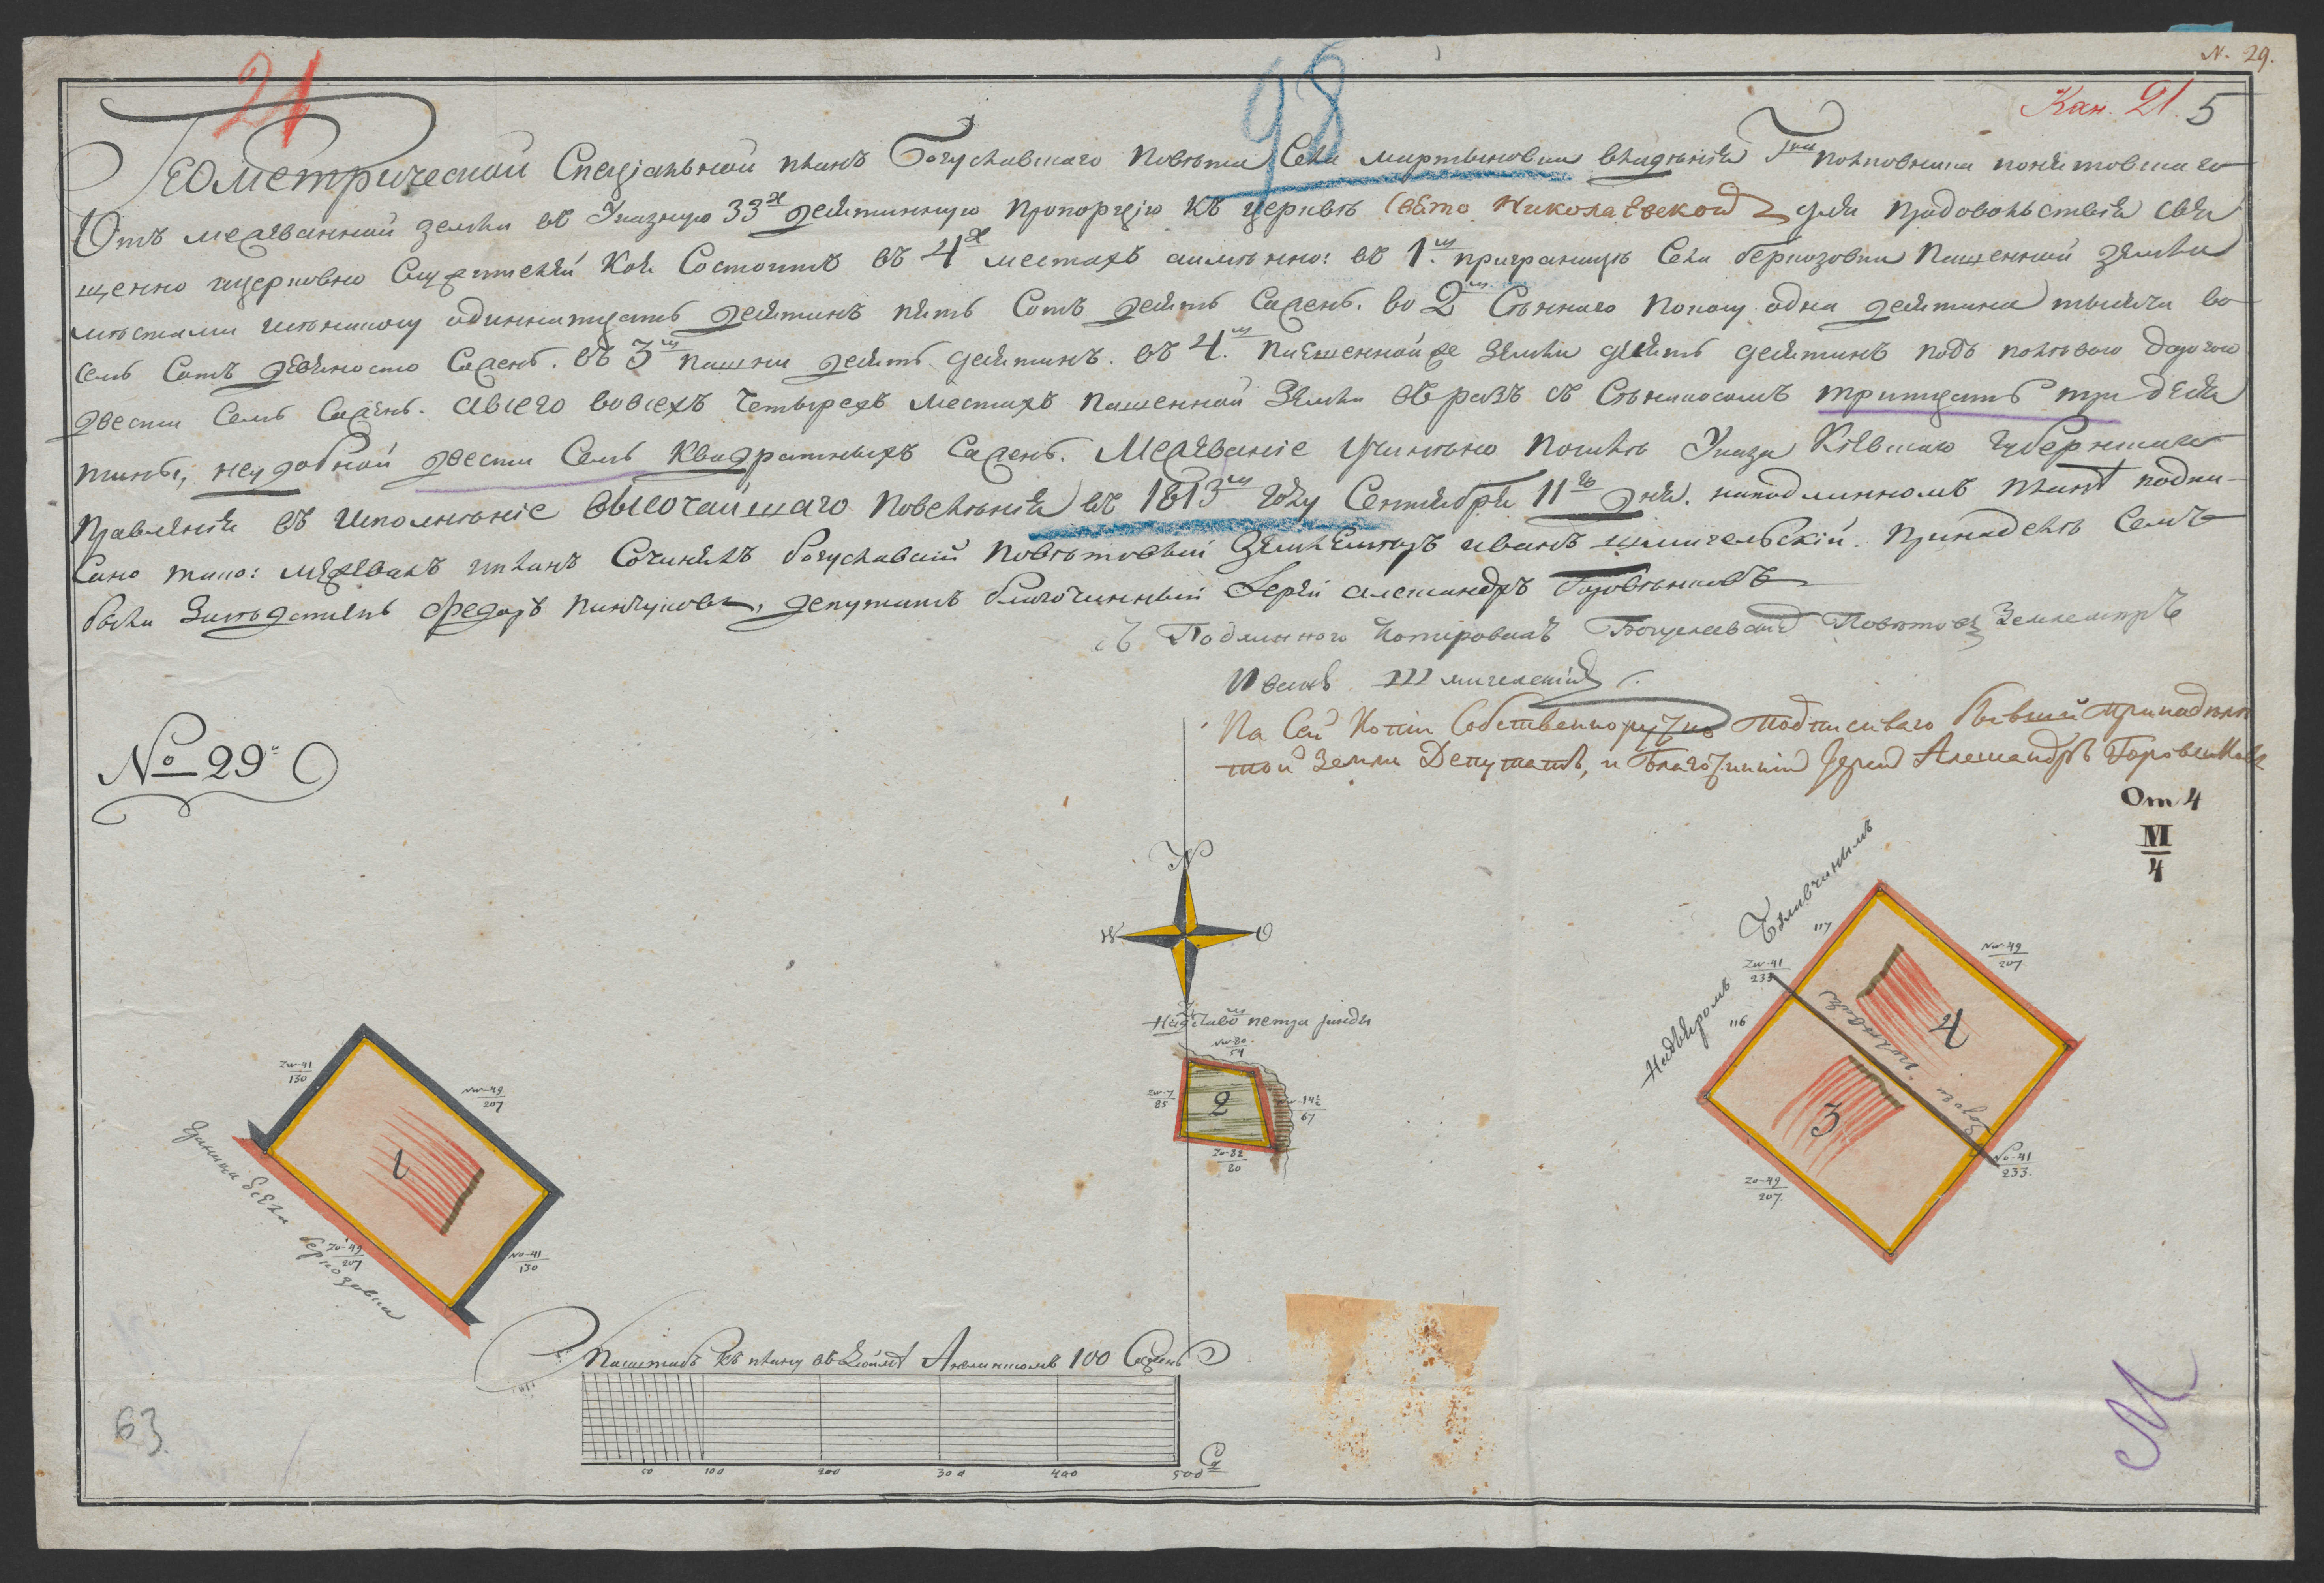 N. 29.
21
98
Кан. 21. 5
Геометрической Специальной планъ Богуславскаго повѣта Села мартыновки владѣнія Г<sup>на</sup> полковника понятовскаго
Отъ межеванной земли въ Указную 33<sup>х</sup> десятинную пропорцію къ церквѣ Свято Николаевской для продовольствія свя
щенно ицерковно Служителей Кои Состоитъ въ 4<sup>х</sup> местахъ аимянно: въ 1<sup>м</sup>. приграницѣ Села беркозовки Пашенной земли
мѣстами одиннатцать десятинъ пять Сотъ десять Сажень. во 2<sup>м</sup> Сѣннаго Покосу одна десятина тысяча во
семь Сотъ девяносто Сажень. въ 3<sup>м</sup> пашни десять десятинъ. въ 4.<sup>м</sup> пашенной же Земли десять десятинъ подъ полѣвою дорогою
двести Семь Сажень. Авсего вовсехъ Четырехъ местахъ пашенной Земли въ разъ съ Сѣнокосомъ тритцать три деся
тины, неудобной двести Семь Квадратныхъ Сажень. Межеваніе Учинѣно Посилѣ Указа Кіевскаго Губернскаго
Правленія въ исполнѣніе высочайшаго повелѣнія въ 1813<sup>м</sup> году Сентября 11<sup>го</sup> дня. наподлинномъ планѣ подпи-
сано тако: межевалъ ипланъ Сочинялъ богуславскій повѣтовый Землемѣръ иванъ шмигельскій. Принадѣлѣ Семъ
былъ Засѣдатель Федоръ Пинчуковъ, депутатъ благочинный Іерей александръ Боровѣнковъ
съ Подлинного Копировалъ Богуславский Повѣтовый Землемѣръ
Иванъ Шмигельскій
На Сей Копіи Собственноручно подписиваго бывший при надѣлѣ
той земли Депутатъ, и Благочинний Іерей Александръ Боровенковъ
№ 29<sup>й</sup>
От 4
М
4
N
W O
Надставо петра
Nw-80
54
Zw-7
85
2
Nw-14½
67
Zo-82
80
Zw-41
130
Nw-49
207
1
Граница Села беркозовки
Zo-49
207
No-41
130
117
Zw-41
233
Nw-49
207
116
4
дорога полѣвая
3
No-41
233.
Zo-49
207.
Маштабъ Къ плану въ Дюймѣ Англинскомъ 100 Сажень
50 100 200 300 400 500 Са
63.
М